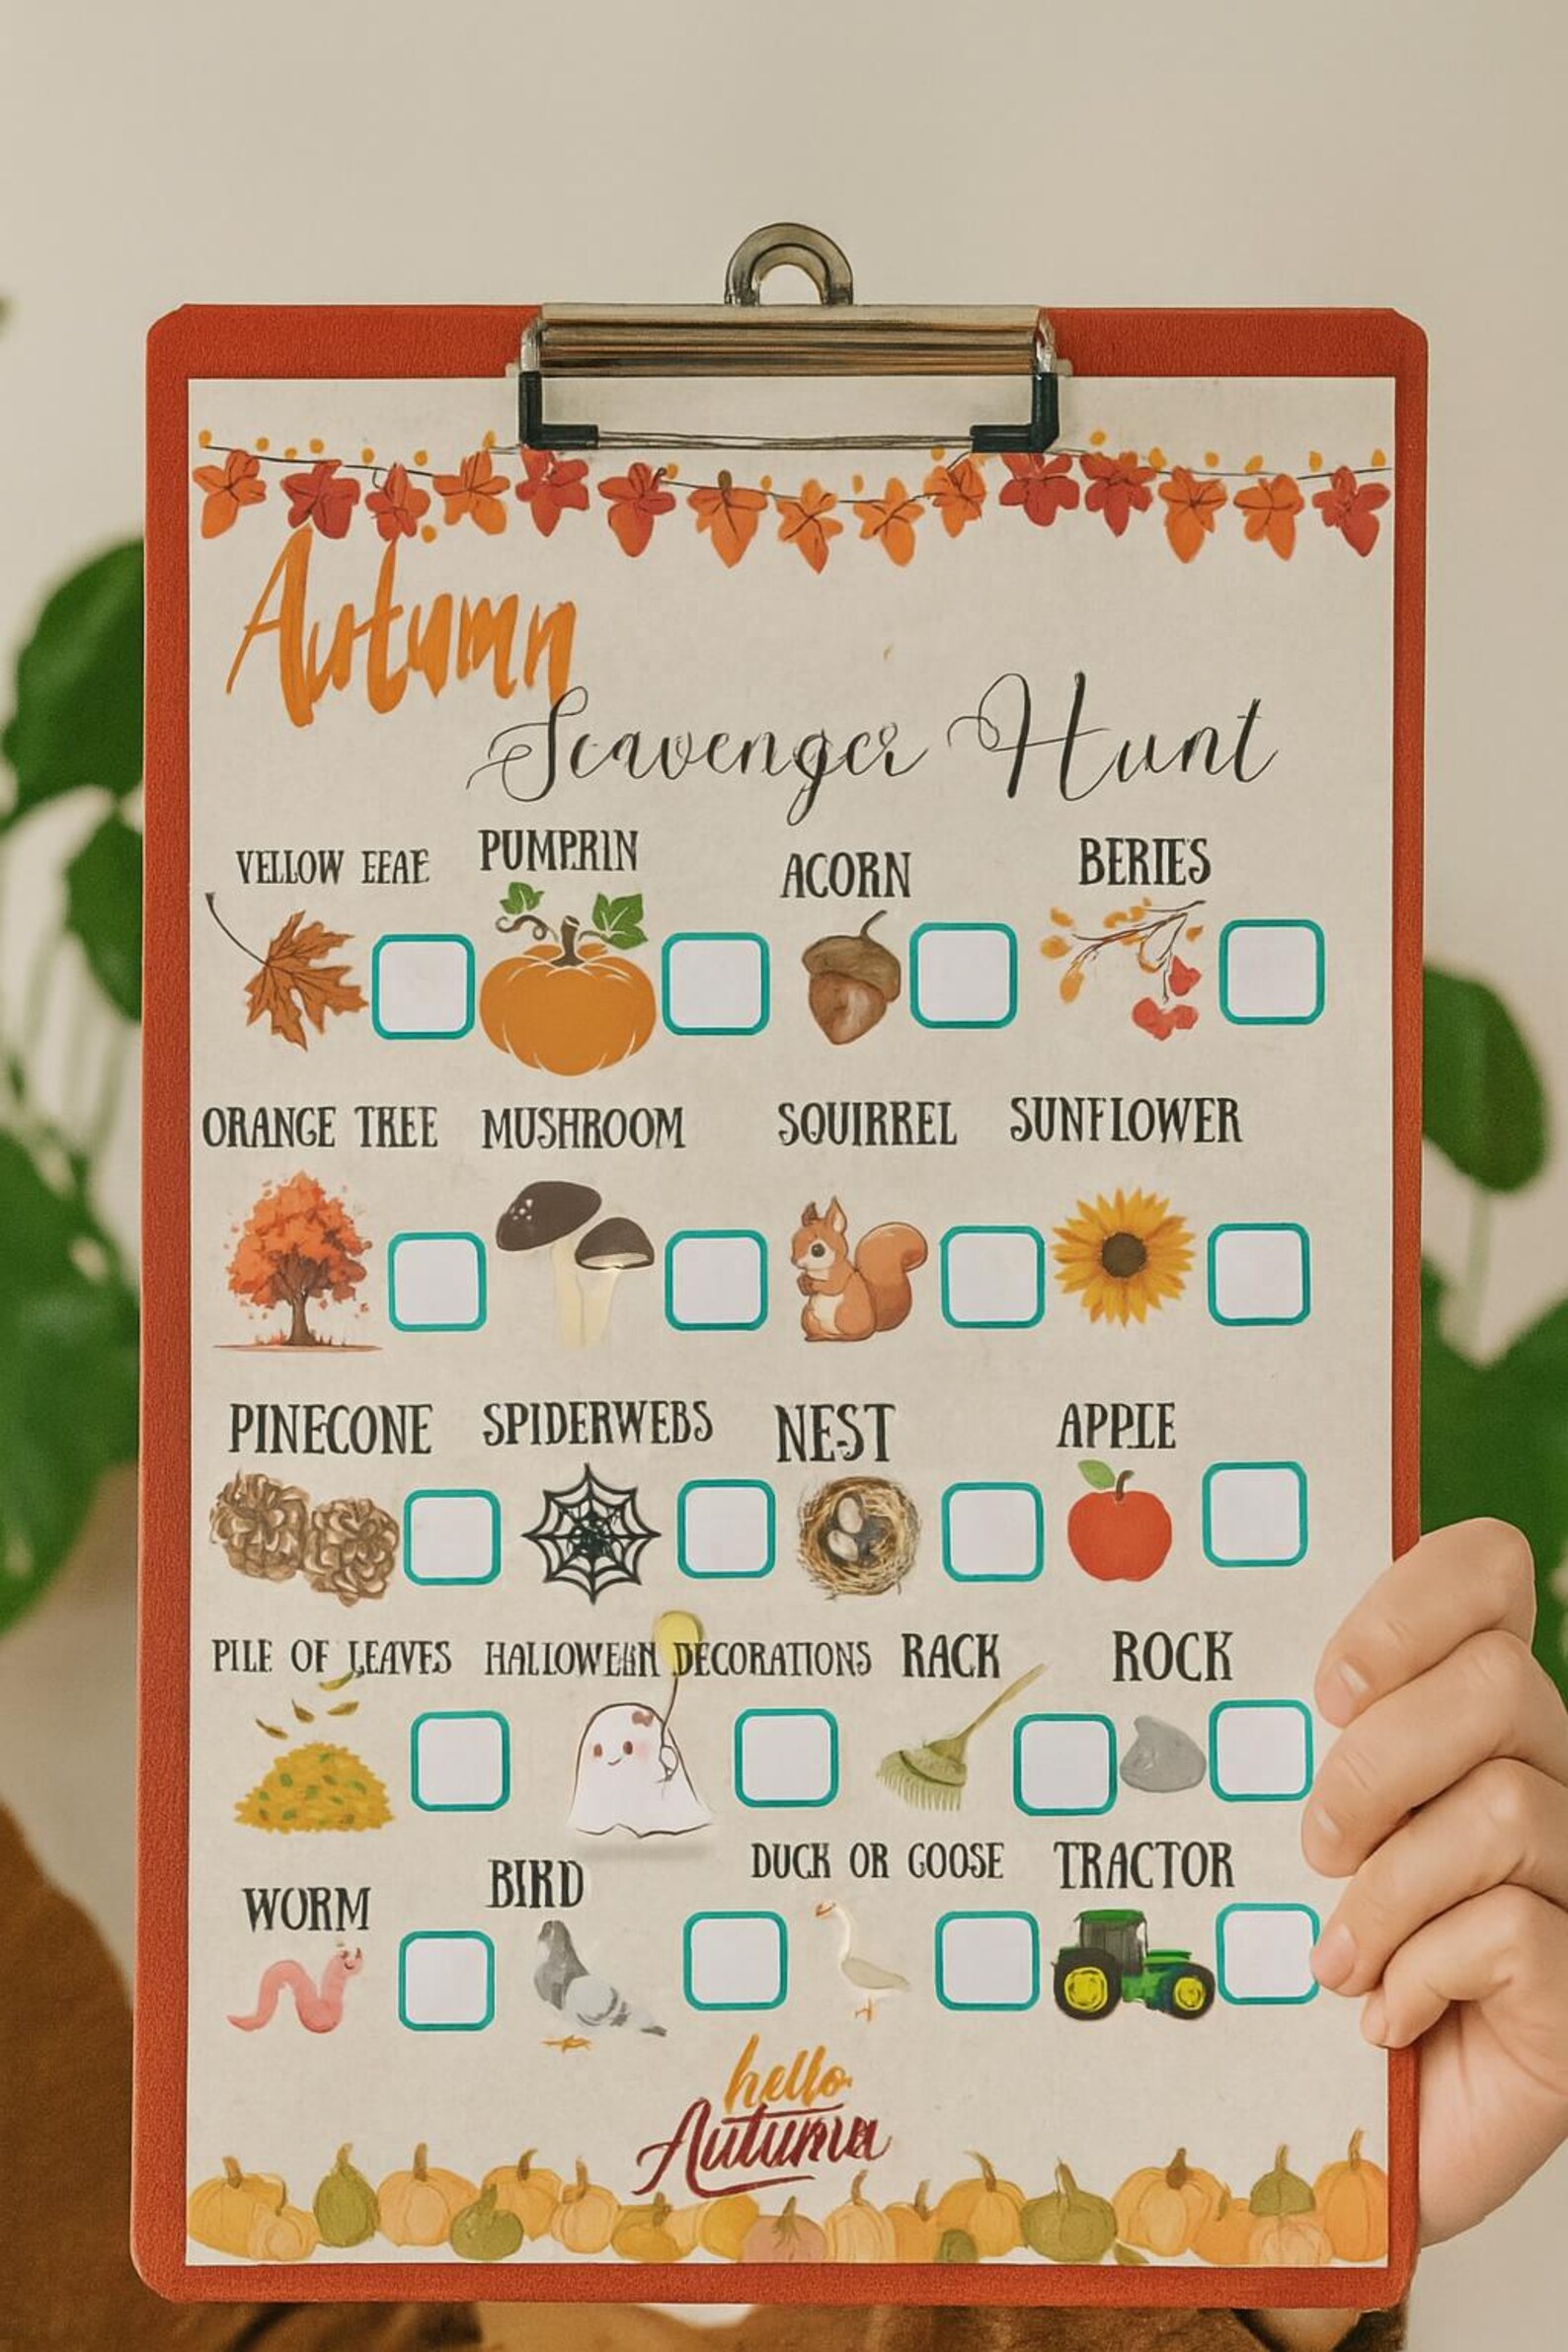 Autumn
Scavenger Hunt
VELLOW EEAE PUMPRIN ACORN BERIES
ORANGE TREE MUSHROOM SQUIRREL SUNFLOWER
PINECONE SPIDERWEBS NEST APPLE
PILE OF LEAVES DECORATIONS RACK ROCK
WORM BIRD DUCK OR GOOSE TRACTOR
hello
Autumn